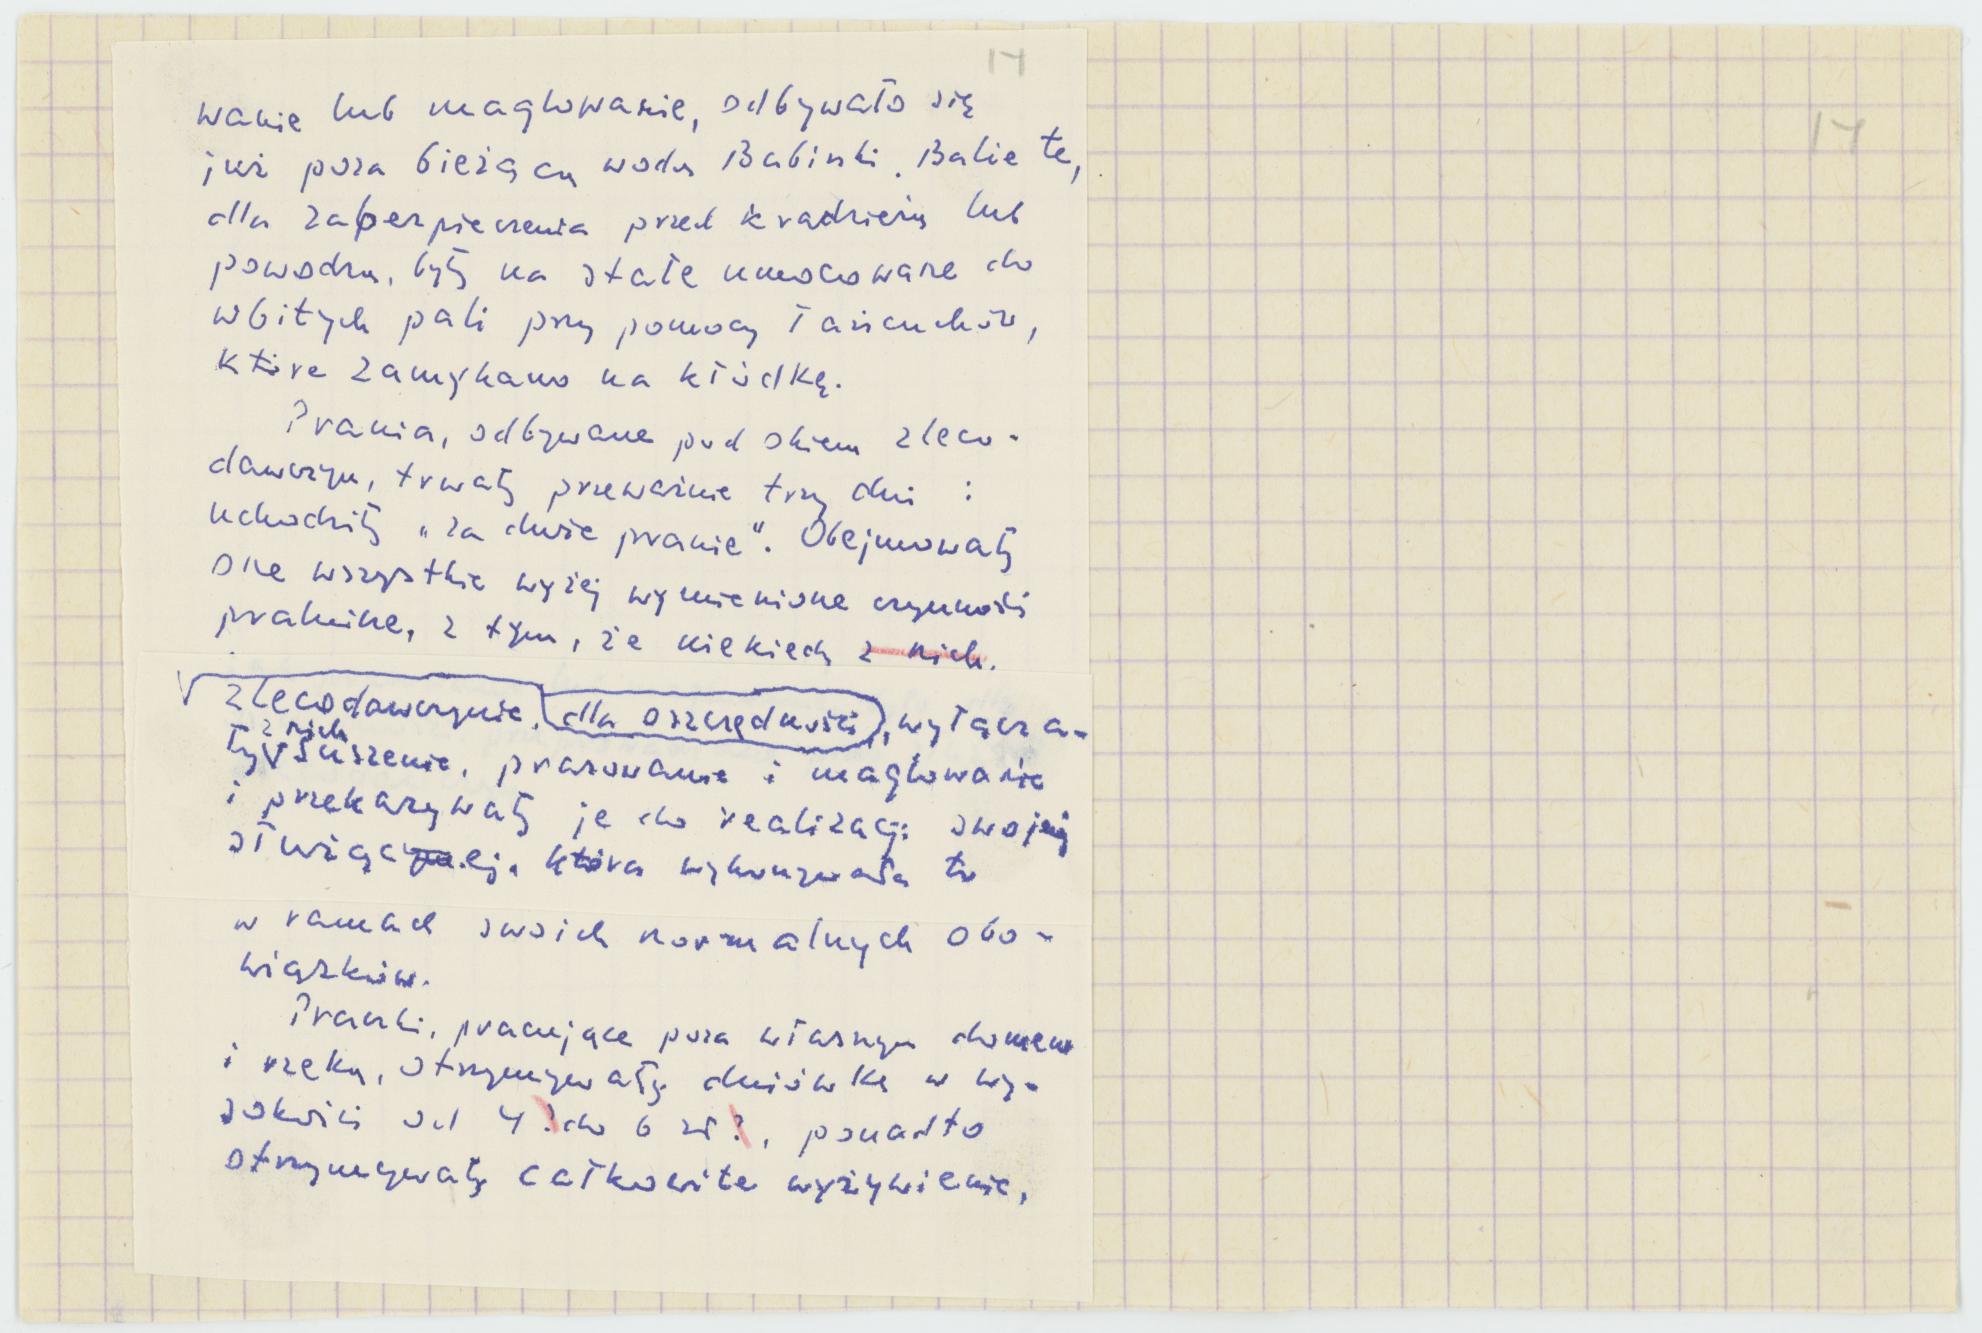 17
17
wanie lub maglowanie, odbywało się
już poza bieżącą wodą Babinki. Balie te,
dla zabezpieczenia przed kradzieżą lub
powodzią, były na stałe umocowane do
wbitych pali przy pomocy łańcuchów,
które zamykano na kłódkę.
Prania, odbywane pod okiem zleco-
dawczyń, trwały przeważnie trzy dni :
uchodziły „za duże pranie". Obejmowały
one wszystkie wyżej wymienione czynności
pralnicze, z tym, że niekiedy z nich.
zlecodawczynie, dla oszczędności, wyłącza-
z nich
ły suszenie, prasowanie i maglowanie
i przekazywały je do realizacji swojej
służącej, która wykonywała to
w ramach swoich normalnych obo-
wiązków.
Praczki, pracujące poza własnym domem
i rzeką, otrzymywały dniówkę w wy-
sokości od 4? do 6 zł?, ponadto
otrzymywały całkowite wyżywienie,